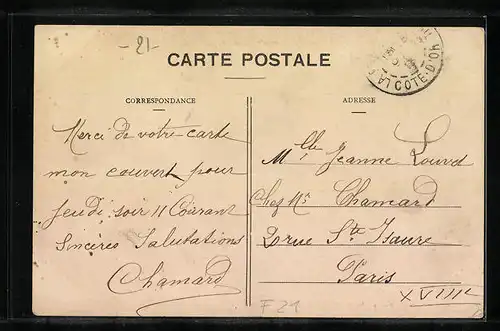 -21-
CARTE POSTALE
CORRESPONDANCE
ADRESSE
LA COTE-D'OR
Merci de votre carte
mon couvert pour
Jeudi soir 11 Courant
Sincères Salutations
Chamard
Mlle Jeanne Louvet
Chez Mr Chamard
20 rue Ste Isaure
Paris
XVIIIe
F21